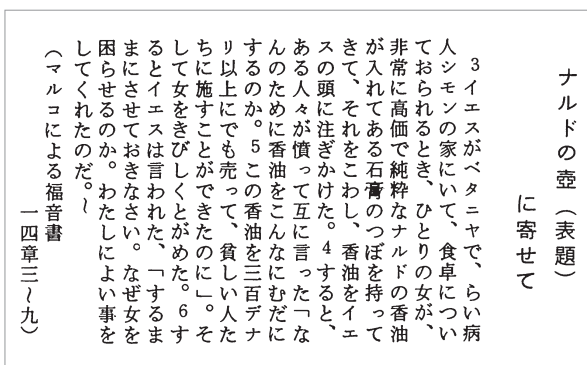 ナルドの壺（表題）
に寄せて
3イエスがベタニヤで、らい病
人シモンの家にいて、食卓につい
ておられるとき、ひとりの女が、
非常に高価で純粋なナルドの香油
が入れてある石膏のつぼを持って
きて、それをこわし、香油をイエ
スの頭に注ぎかけた。4すると、
ある人々が憤って互に言った「な
んのために香油をこんなにむだに
するのか。5この香油を三百デナ
リ以上にでも売って、貧しい人た
ちに施すことができたのに」。そ
して女をきびしくとがめた。6す
るとイエスは言われた、「するま
まにさせておきなさい。なぜ女を
困らせるのか。わたしによい事を
してくれたのだ。〜
（マルコによる福音書
一四章三〜九）